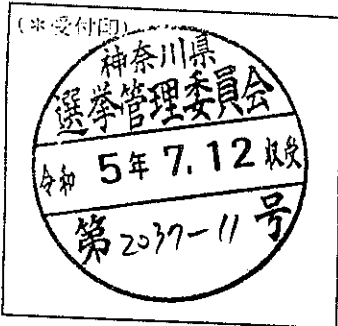 (※受付印)
神奈川県
選挙管理委員会
令和 5年 7.12 収受
第2037-11号